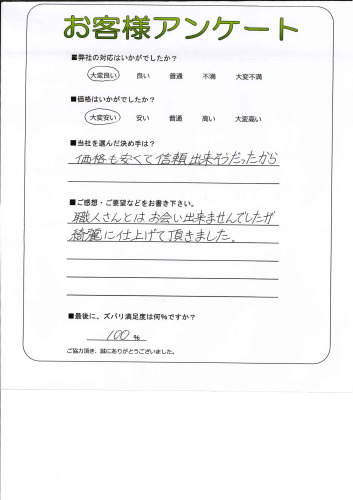 お客様アンケート
■弊社の対応はいかがでしたか?
大変良い 良い 普通 不満 大変不満
■価格はいかがでしたか?
大変安い 安い 普通 高い 大変高い
■当社を選んだ決め手は?
価格も安くて信頼出来そうだったから
■ご感想・ご要望などをお書き下さい。
職人さんとはお会い出来ませんでしたが
綺麗に仕上げて頂きました。
■最後に、ズバリ満足度は何%ですか?
100 %
ご協力頂き、誠にありがとうございました。